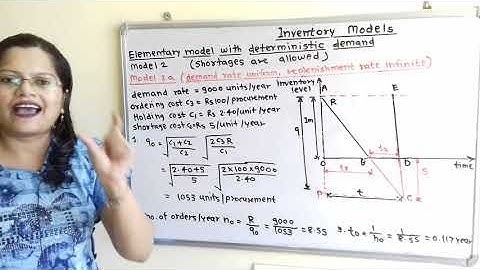 Inventory Models
Elementary model with deterministic demand
Model 2 (shortages are allowed)
Model 2a (demand rate uniform, replenishment rate infinite)
demand rate = 9000 units/year
ordering cost C3 = Rs100/procurement
Holding cost C1 = Rs 2.40/unit/year
shortage cost C2=Rs 5/unit/year
1. q0 = √(C1+C2/C2) √(2C3R/C1)
= √(2.40+5/5) √(2×100×9000/2.40)
= 1053 units/procurement
no. of orders/year n0 = R/q0 = 9000/1053 = 8.55
3. t0 = 1/n0 = 1/8.55 = 0.117 year
Inventory
level
A
E
R
q
Im
O
B
D
time
t1
t2
S
P
t
C